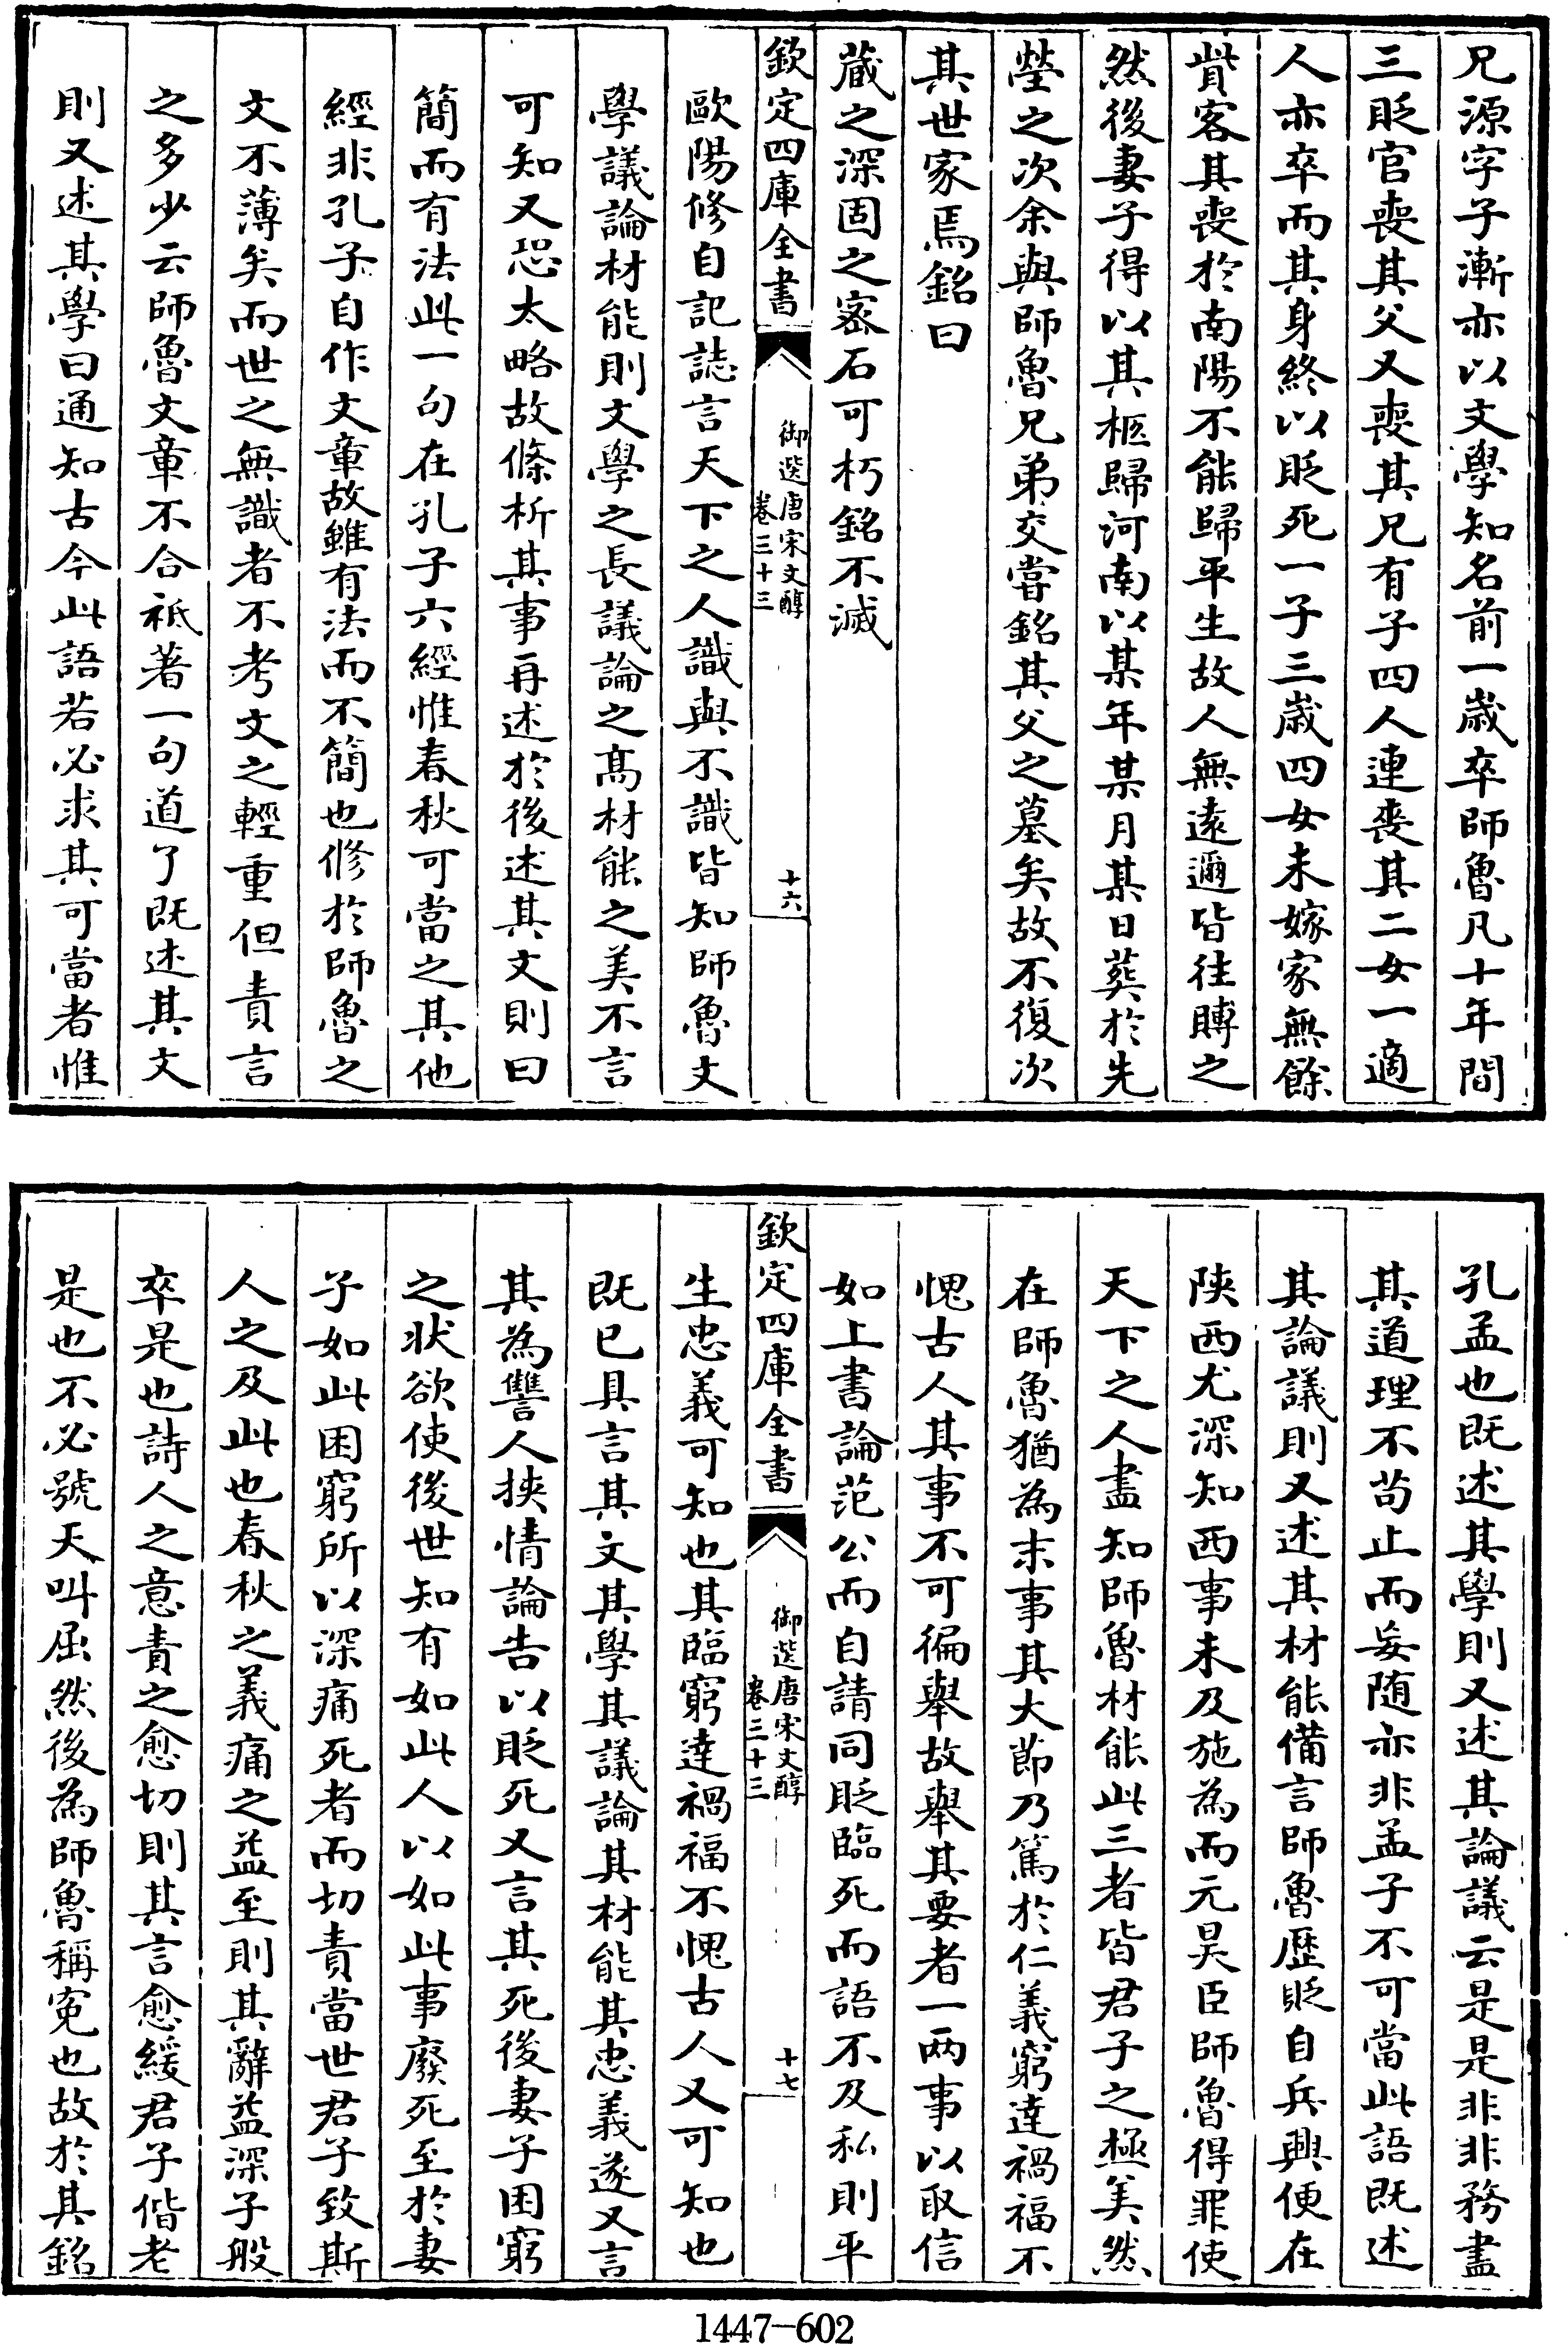 兄源字子漸亦以文學知名前一歲卒師魯凡十年間
三貶官喪其父又喪其兄有子四人連喪其二女一適
人亦卒而其身終以貶死一子三歲四女未嫁家無餘
貲客其喪於南陽不能歸平生故人無遠邇皆往賻之
然後妻子得以其柩歸河南以某年某月某日葬於先
塋之次余與師魯兄弟交嘗銘其父之墓矣故不復次
其世家焉銘曰
藏之深固之密石可朽銘不滅
欽定四庫全書
御選唐宋文醇
卷三十三
十六
歐陽修自記誌言天下之人識與不識皆知師魯文
學議論材能則文學之長議論之高材能之美不言
可知又恐太略故條析其事再述於後述其文則曰
簡而有法此一句在孔子六經惟春秋可當之其他
經非孔子自作文章故雖有法而不簡也修於師魯之
文不薄矣而世之無識者不考文之輕重但責言
之多少云師魯文章不合祗著一句道了既述其文
則又述其學曰通知古今此語若必求其可當者惟
孔孟也既述其學則又述其論議云是是非非務盡
其道理不苟止而妄随亦非孟子不可當此語既述
其論議則又述其材能備言師魯歷貶自兵興便在
陝西尤深知西事未及施為而元昊臣師魯得罪使
天下之人盡知師魯材能此三者皆君子之極美然
在師魯猶為末事其大節乃篤於仁義窮達禍福不
愧古人其事不可徧舉故舉其要者一兩事以取信
如上書論范公而自請同貶臨死而語不及私則平
欽定四庫全書
御選唐宋文醇
卷三十三
十七
生忠義可知也其臨窮達禍福不愧古人又可知也
既已具言其文其學其議論其材能其忠義遂又言
其為讐人挾情論告以貶死又言其死後妻子困窮
之狀欲使後世知有如此人以如此事廢死至於妻
子如此困窮所以深痛死者而切責當世君子致斯
人之及此也春秋之義痛之益至則其辭益深子般
卒是也詩人之意責之愈切則其言愈緩君子偕老
是也不必號天叫屈然後為師魯稱寃也故於其銘
1447-602